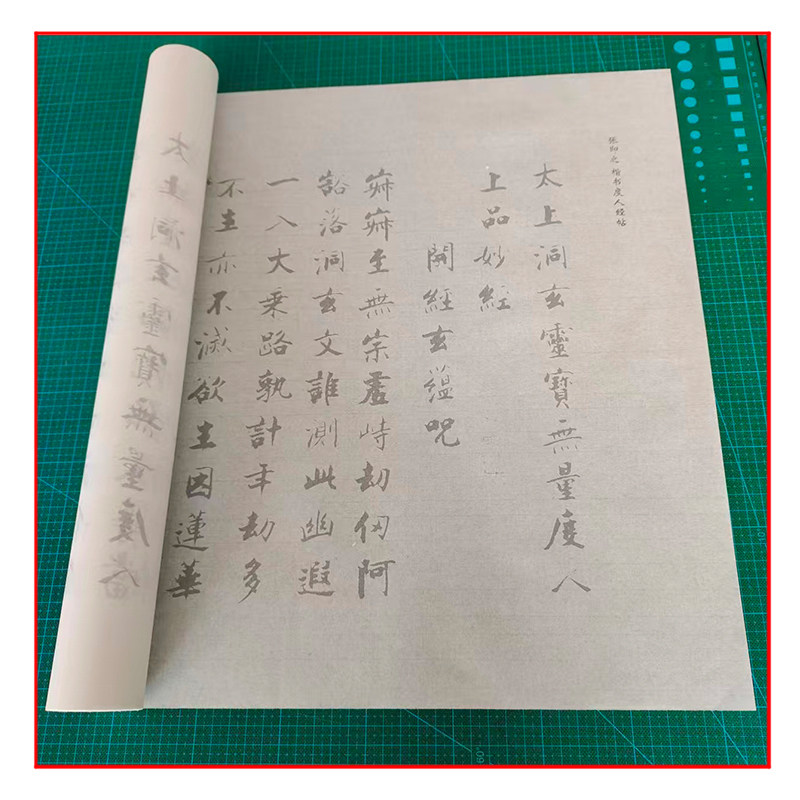 张即之 楷书度人经帖
太上洞玄靈寶無量度人
上品妙經
開經玄蘊呪
寂寂至無宗虛峙劫仞阿
豁落洞玄文誰測此幽遐
一入大乘路孰計年劫多
不生亦不滅欲生因蓮華
太上洞玄靈寶無量度
60°